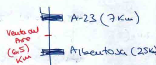 A-23 (7Km)
Ventas del
Aire
(6'5)
Km
Albentosa (25Km)